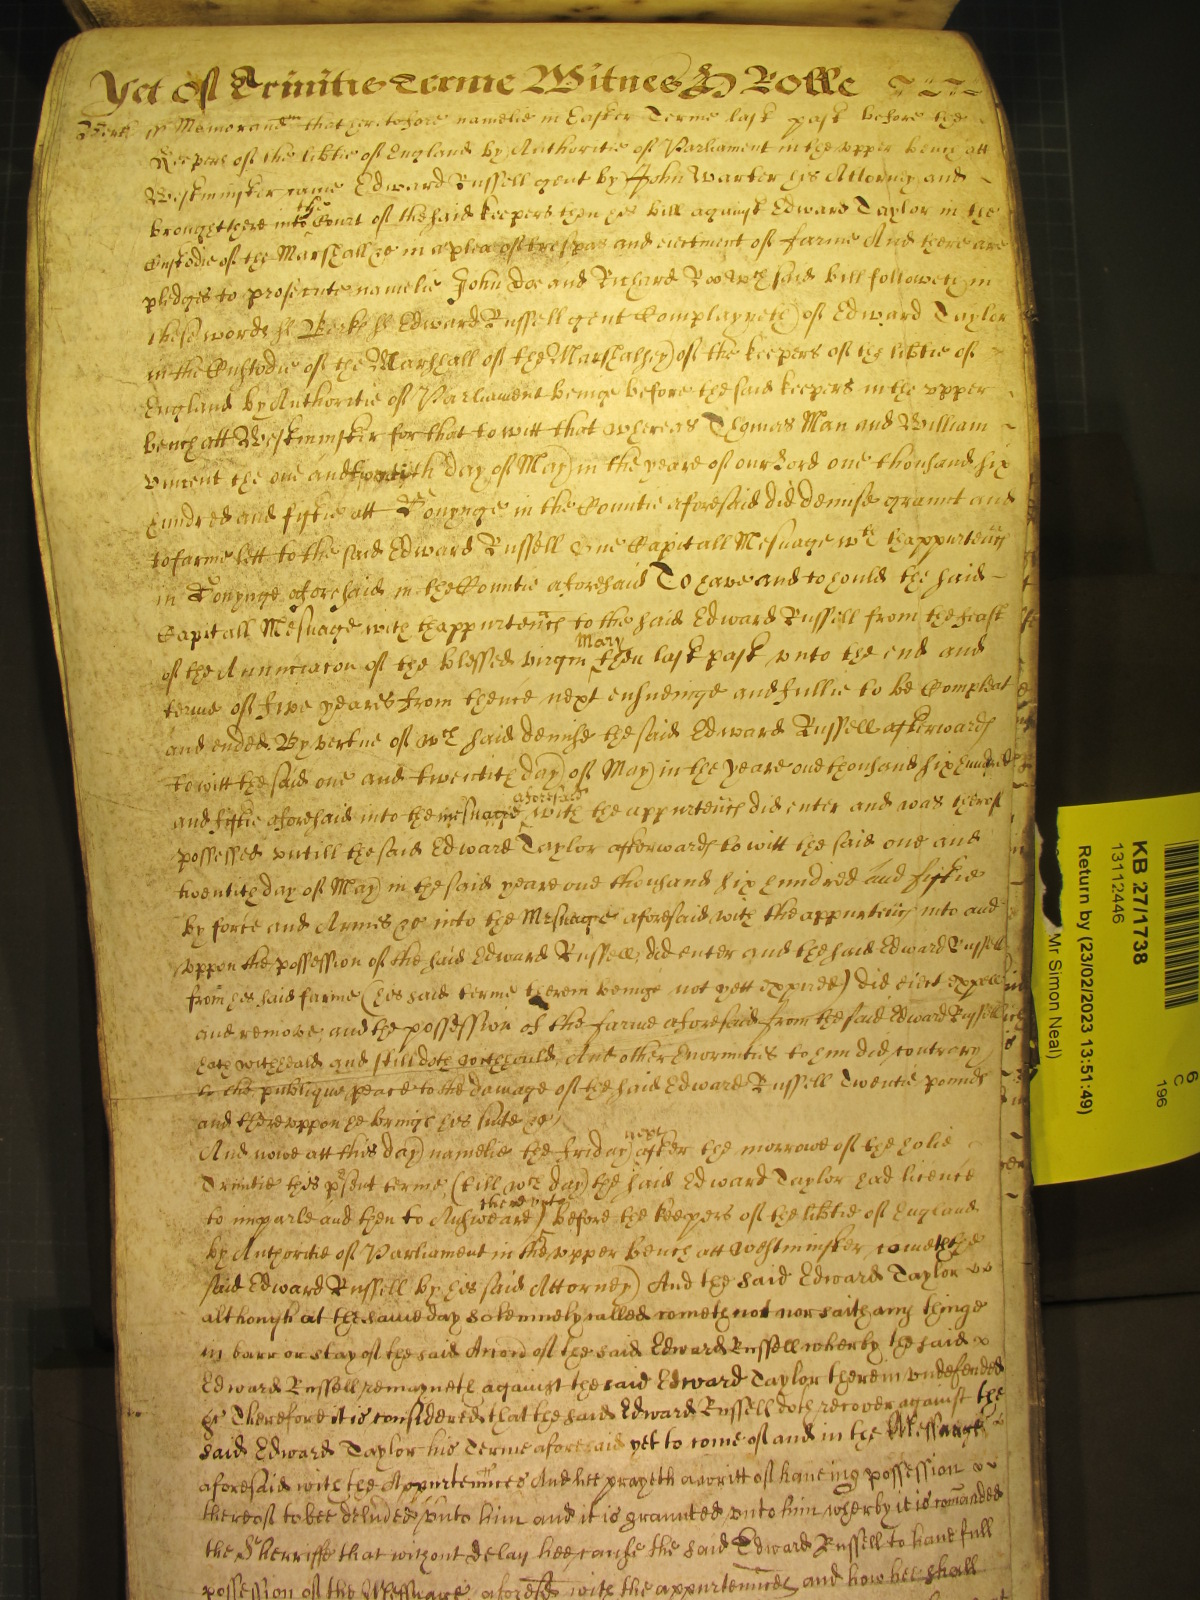 Yet of Trinitie Terme Witnes H Rolle
Berk ss Memorand that heretofore namelie in Easter Terme last past before the
Keepers of the libtie of England by Authoritie of Parliament in the upper bench att
Westminster came Edward Russell gent by John Warter his Attorney and
brought here into the Court of the said keepers then his bill against Edward Taylor in the
Custodie of the Marshall &c in a plea of trespas and eiectment of farme And there are
pledges to prosecute namelie John Doe and Richard Roo wch said bill followeth in
these words ss Berks ss Edward Russell gent Complayneth of Edward Taylor
in the Custodie of the Marshall of the Marshalsey of the keepers of the libtie of
England by Authoritie of Parliament beinge before the said keepers in the upper
bench att Westminster for that to witt that whereas Thomas Man and William
Vincent the one and twentith day of May in the yeare of our Lord one thousand six
hundred and fiftie att in the Countie aforesaid did demise graunt and
to farme lett to the said Edward Russell One Capitall Mesuage wth thappurtenncs
in aforesaid in the Countie aforesaid To have and to hould the said
Capitall Mesuage with thappurtenncs to the said Edward Russell from the feast
of the Annunciacon of the blessed virgin Mary then last past unto the end and
terme of five yeares from thence next ensueinge and fullie to be Compleat
and ended By vertue of wch said demise the said Edward Russell afterwards
to witt the said one and twentith day of May in the yeare one thousand six hundred
and fiftie aforesaid into the mesuage aforesaid with the appurtenncs did enter and was thereof
possessed untill the said Edward Taylor afterwards to witt the said one and
twentith day of May in the said yeare one thousand six hundred and fiftie
by force and Armes &c into the Mesuage aforesaid with the appurtenncs into and
uppon the possession of the said Edward Russell did enter and the said Edward Russell
from his said farme (his said terme therein beinge not yett expired) did eiect expell
and remove and the possession of the farme aforesaid from the said Edward Russell
hath withheald and still doth withhould And other Enormities to him did contrary
to the publique peace to the damage of the said Edward Russell Twentie pounds
and thereuppon he bringth his suite &c
And nowe att this day namelie the friday next after the morrowe of the holie
Trinitie this psent terme (till wch day) the said Edward Taylor had licence
to imparle and then to Answeare thereunto before the keepers of the libtie of England
by Authoritie of Parliament in the upper bench att Westminster cometh the
said Edward Russell by his said Attorney And the said Edward Taylor
although at the same day solemnely called cometh not nor saith any thinge
in barr or stay of the said Accon of the said Edward Russell wherby the said
Edward Russell remayneth against the said Edward Taylor therein undefended
&c Therefore it is considered that the said Edward Russell doth recover against the
said Edward Taylor his Terme aforesaid yet to come of and in the Messuage
aforesaid with the Appurtennces And hee prayeth a writt of haueing possession
thereof to bee deluded unto him and it is graunted unto him wherby it is comanded
the Sherriffe that without delay hee cause the said Edward Russell to haue full
possession of the Messuage aforesd with the appurtennces and how hee shall
KB 27/1738
13112446
Return by (23/02/2023 13:51:49)
Mr Simon Neal)
6
C
196